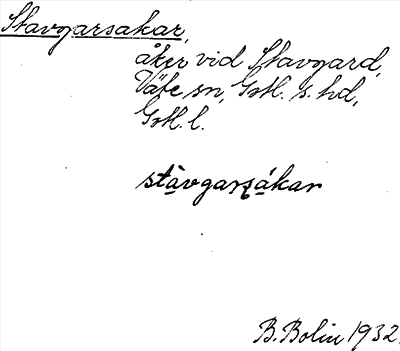 Stavgarsakar,
åker vid Stavgard,
Väte sn, Gotl. s. hd,
Gotl. l.
stàvgarsákar
B. Bolin 1932.